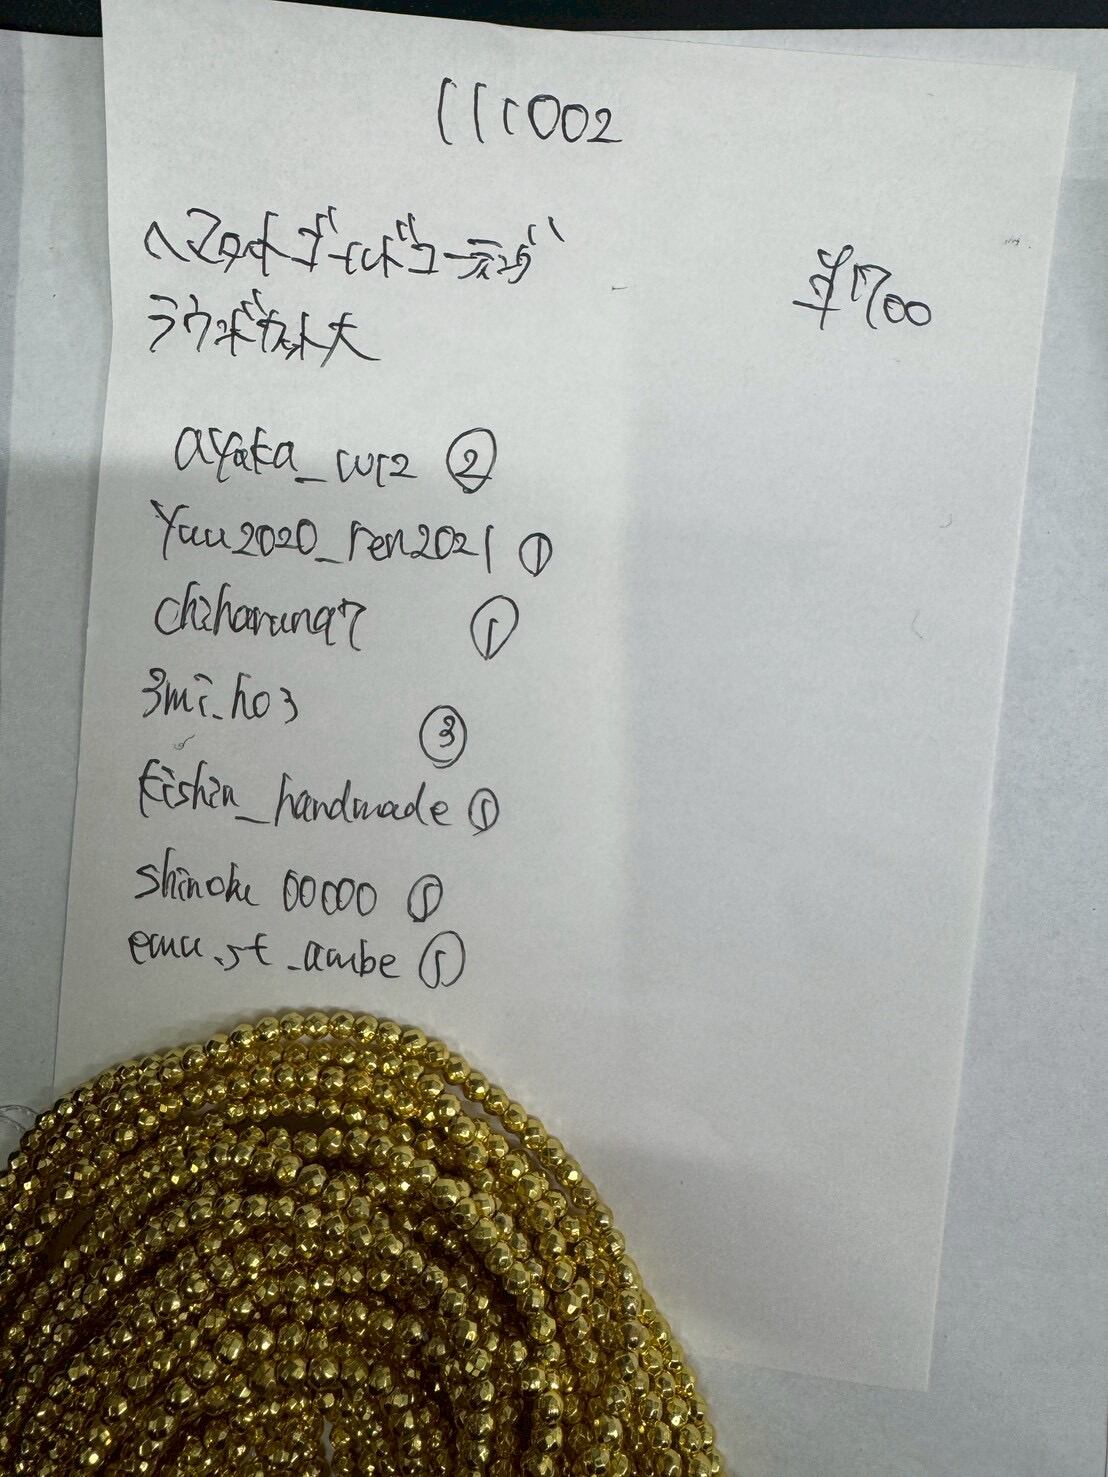 111002
ヘマタイトゴールドコーティング
ラウンドカット大
¥1700
ayaka_wr2 ②
yuu2020_ren2021 ①
chiharuna7 ①
3mi_ho3 ③
kishin_handmade ①
shinoke 00000 ①
emu.st_ambe ①